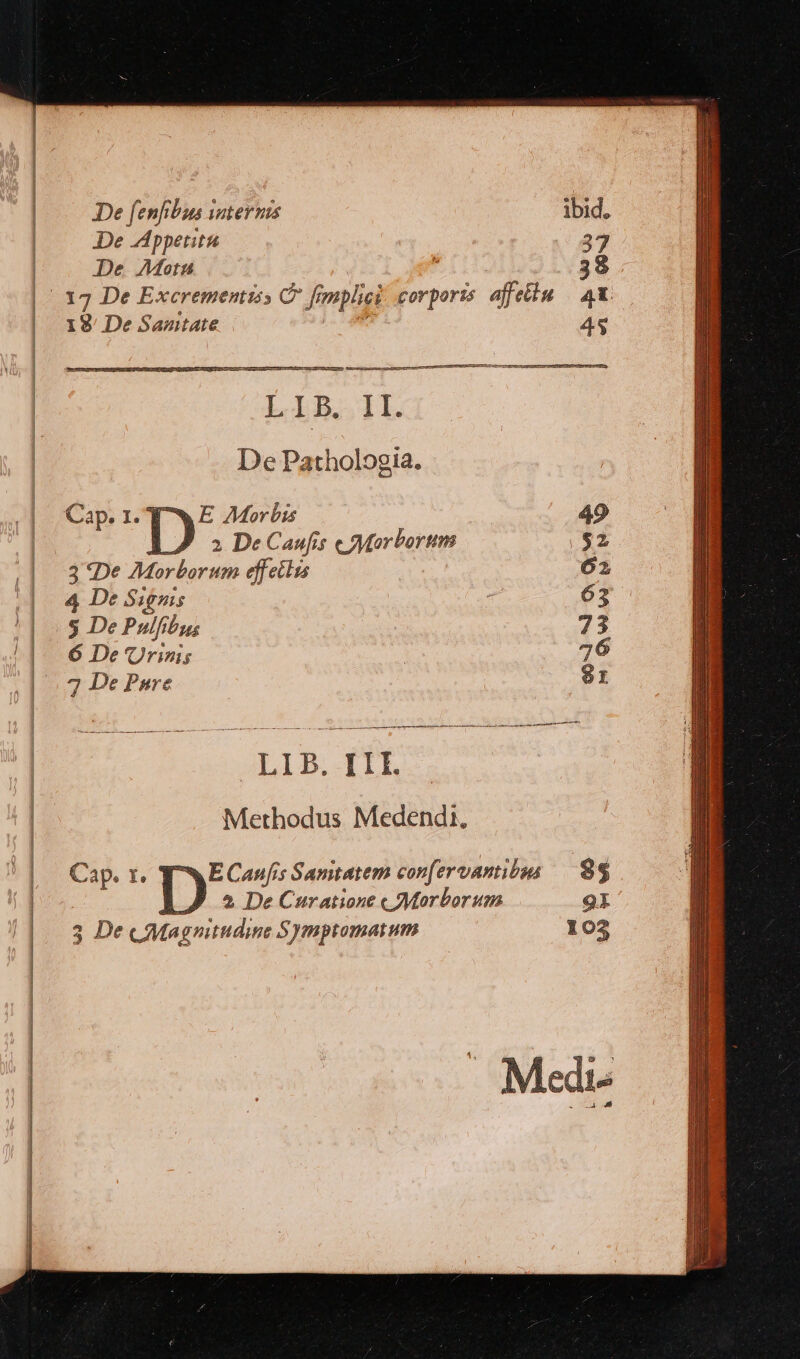 De ſenſibus internis ibid.
De Appetitu 37
De Motu 38
17 De Excrementis, & ſimplici corporis affectu 41
18 De Sanitate 45
LIB. II.
De Pathologia.
Cap. 1. DE Morbis 49
2 De Cauſis Morborum 52
3 De Morborum effectis 62
4 De Signis 63
5 De Pulſibus 73
6 De Urinis 76
7 De Pure 81
LIB. III.
Methodus Medendi.
Cap. 1. DE Cauſis Sanitatem conſervantibus 85
2 De Curatione Morborum 91
3 De Magnitudine Symptomatum 103
Medi-